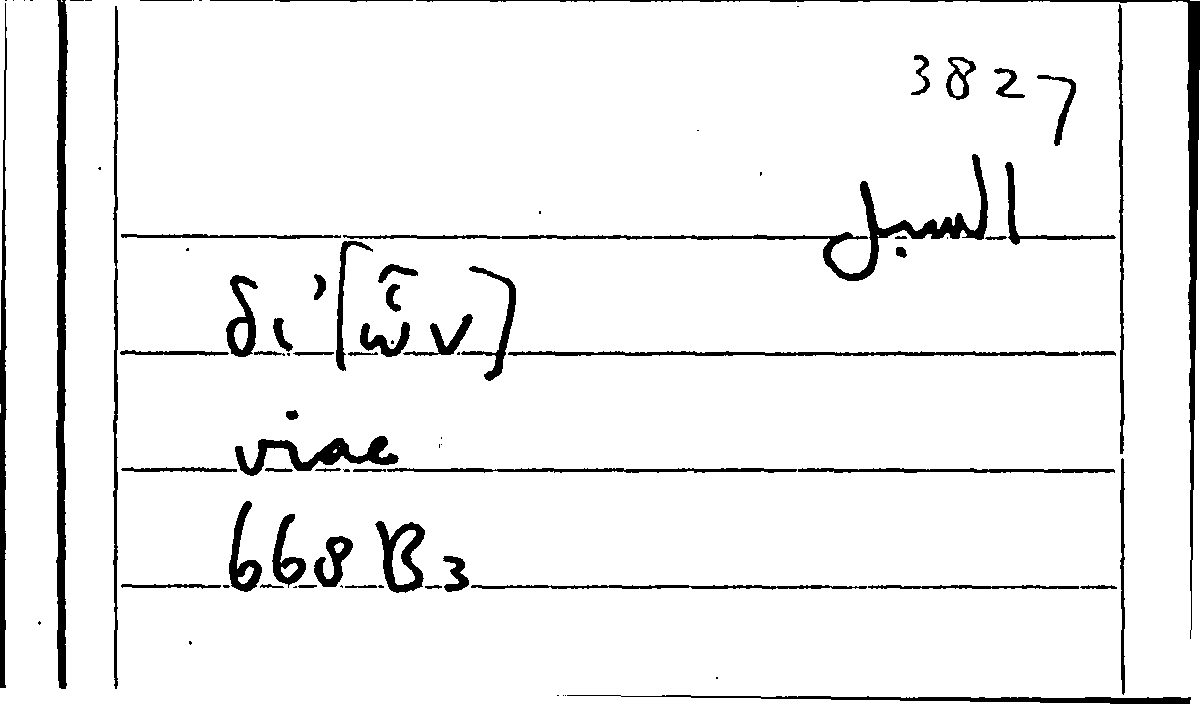 3827
السبل
δι’ [ὧν]
viae
668 B 3